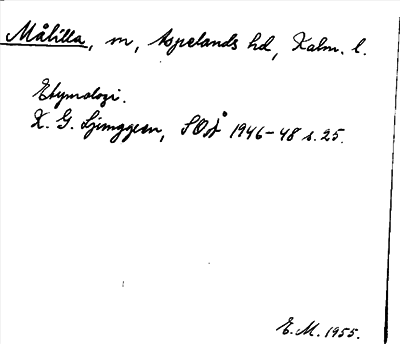 Målilla, sn, Aspelands hd, Kalm. l.
Etymologi.
K. G. Ljunggren, SOÅ 1946-48 s. 25.
E. M. 1955.